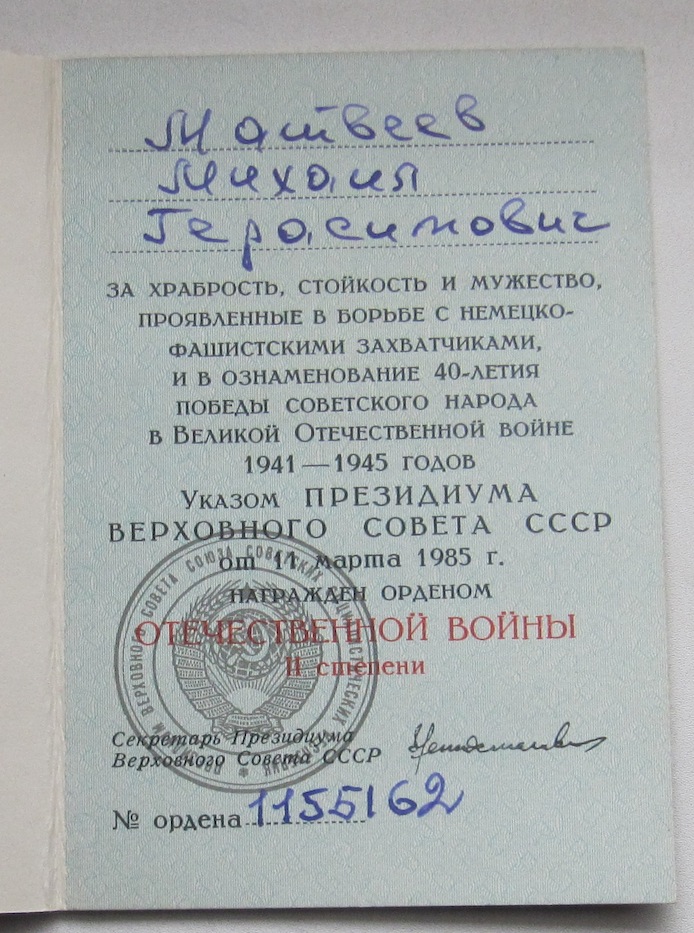 Матвеев
Михаил
Герасимович
ЗА ХРАБРОСТЬ, СТОЙКОСТЬ И МУЖЕСТВО,
ПРОЯВЛЕННЫЕ В БОРЬБЕ С НЕМЕЦКО-
ФАШИСТСКИМИ ЗАХВАТЧИКАМИ,
И В ОЗНАМЕНОВАНИЕ 40-ЛЕТИЯ
ПОБЕДЫ СОВЕТСКОГО НАРОДА
В ВЕЛИКОЙ ОТЕЧЕСТВЕННОЙ ВОЙНЕ
1941—1945 ГОДОВ
УКАЗОМ ПРЕЗИДИУМА
ВЕРХОВНОГО СОВЕТА СССР
от 11 марта 1985 г.
НАГРАЖДЕН ОРДЕНОМ
ОТЕЧЕСТВЕННОЙ ВОЙНЫ
II степени
ПРЕЗИДИУМ ВЕРХОВНОГО СОВЕТА СОЮЗА СОВЕТСКИХ СОЦИАЛИСТИЧЕСКИХ РЕСПУБЛИК
Секретарь Президиума
Верховного Совета СССР
№ ордена 1155162